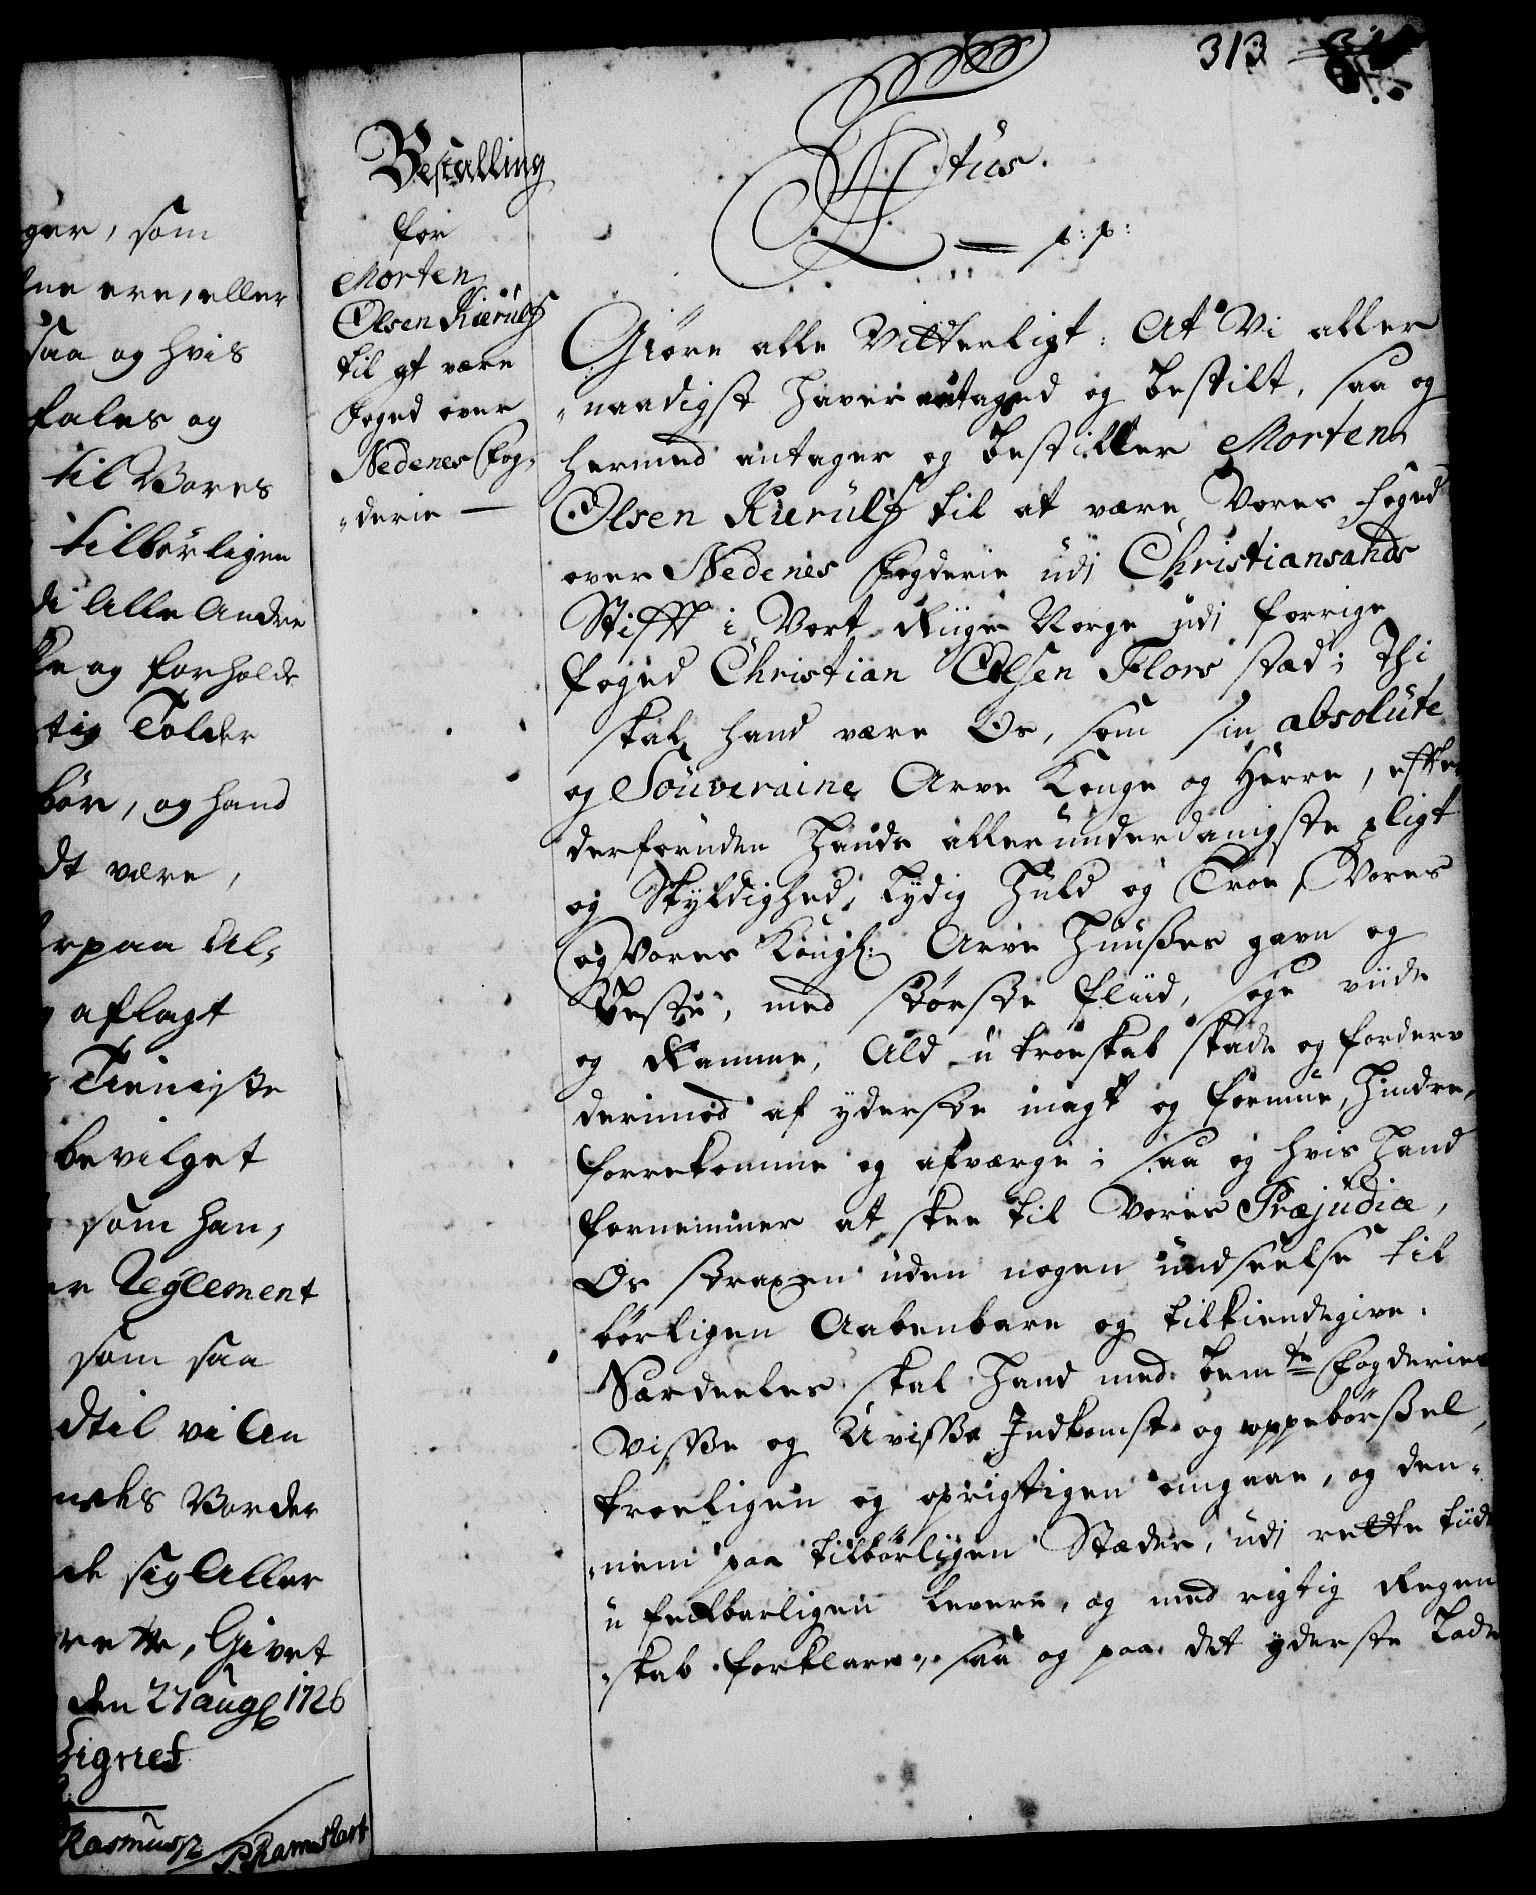 313
ger, som
ne ere, eller
saa og hvis
fales og
til Vores
tilbørligen
di Alle Andre
ke og forholde
tig Tolder
bør, og hand
dt være,
rpaa Al,
aflagt
Tieniste
bevilget
som han,
er Reglement
som saa
dtil vi An
Vorder
de sig Aller
rette, Givet
den 27 Aug 1726
Signet
Rasmusß
Ramshart
Bestalling
for
Morten
Olsen Kierulf
til at være
Foged over
Nedenes Fog,
„derie —
F 4tus.
— p: p:
Giøre alle Vitterligt: At Vi aller
„naadigst haver antaged og bestilt, saa og
hermed antager og bestiller Morten
Olsen Kierulf til at være Vores foged
over Nedenes Fogderie udj Christiansands
Stifft i Vort Riige Norge udj forrige
foged Christian Olsen Flors stæd; Thi
skal hand være Os, som sin absolute
og Souveraine Arve Konge og Herre, effter
derforuden Hands allerunderdanigste pligt
og Skyldighed, Lydig Huld og Troe, Vores
og Vores Kongl: Arve Huußes gavn og
Beste, med største fliid, søge viide
og Ramme, Ald u troeskab skade og forderv
derimod af yderste magt og formue, Hindre,
forrekomme og afværge; saa og hvis Hand
fornemmer at skee til Vores Præjudice,
Os straxen uden nogen undseelse til
børligen Aabenbare og tilkiendegive.
Særdeeles skal Hand med bemte Fogderies
visse og Uvisse Indkomst og oppebørßel,
troeligen og oprigtigen omgaae, og den„
„nem paa tilbørligen Stæder, udj rette tiide
u feilbarligen levere, og med rigtig Regen
„skab forklare, saa og paa det yderste Lade